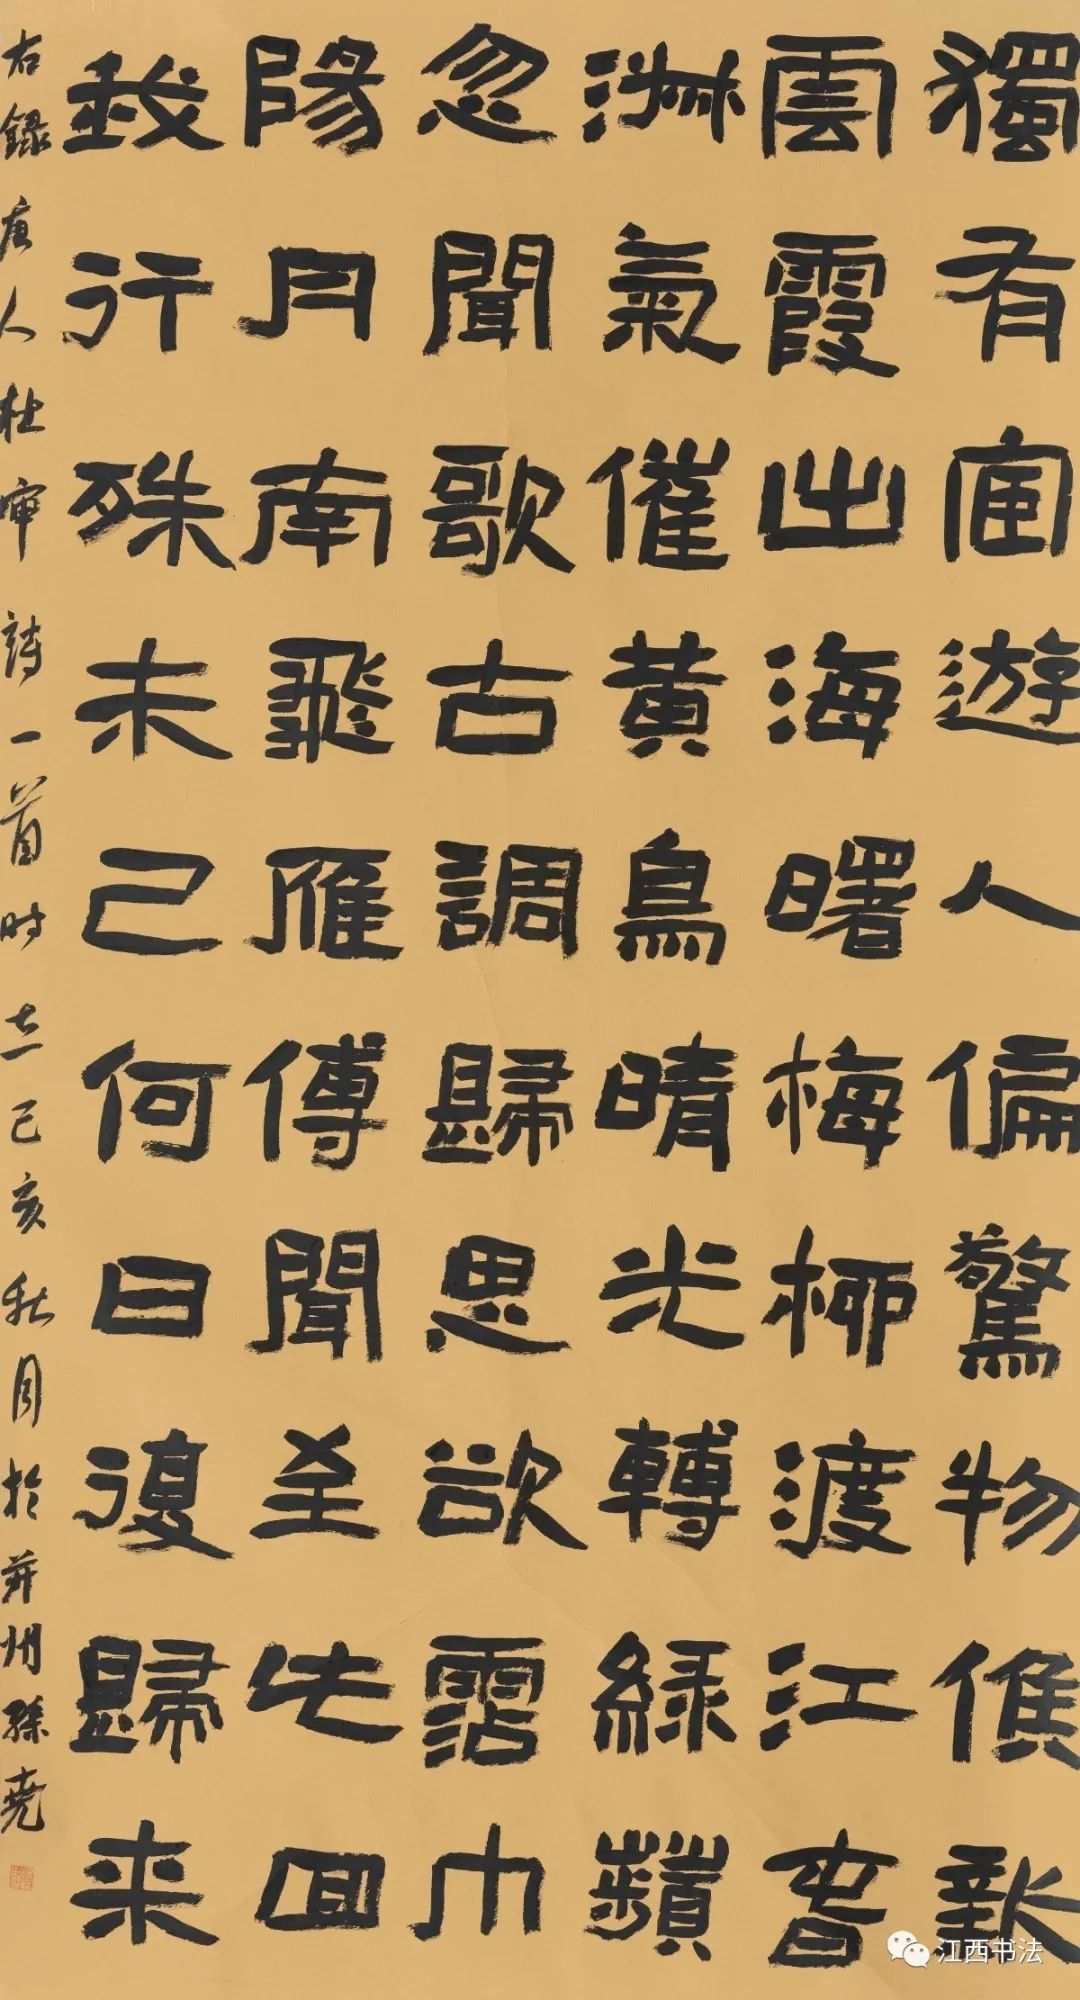 獨有宦遊人偏驚物候新
雲霞出海曙梅柳渡江春
淑氣催黄鳥晴光轉綠蘋
忽聞歌古調歸思欲霑巾
陽月南飛雁傳聞至此回
我行殊未已何日復歸来
右錄唐人杜審詩一首时在己亥秋月於并州孫堯
江西书法